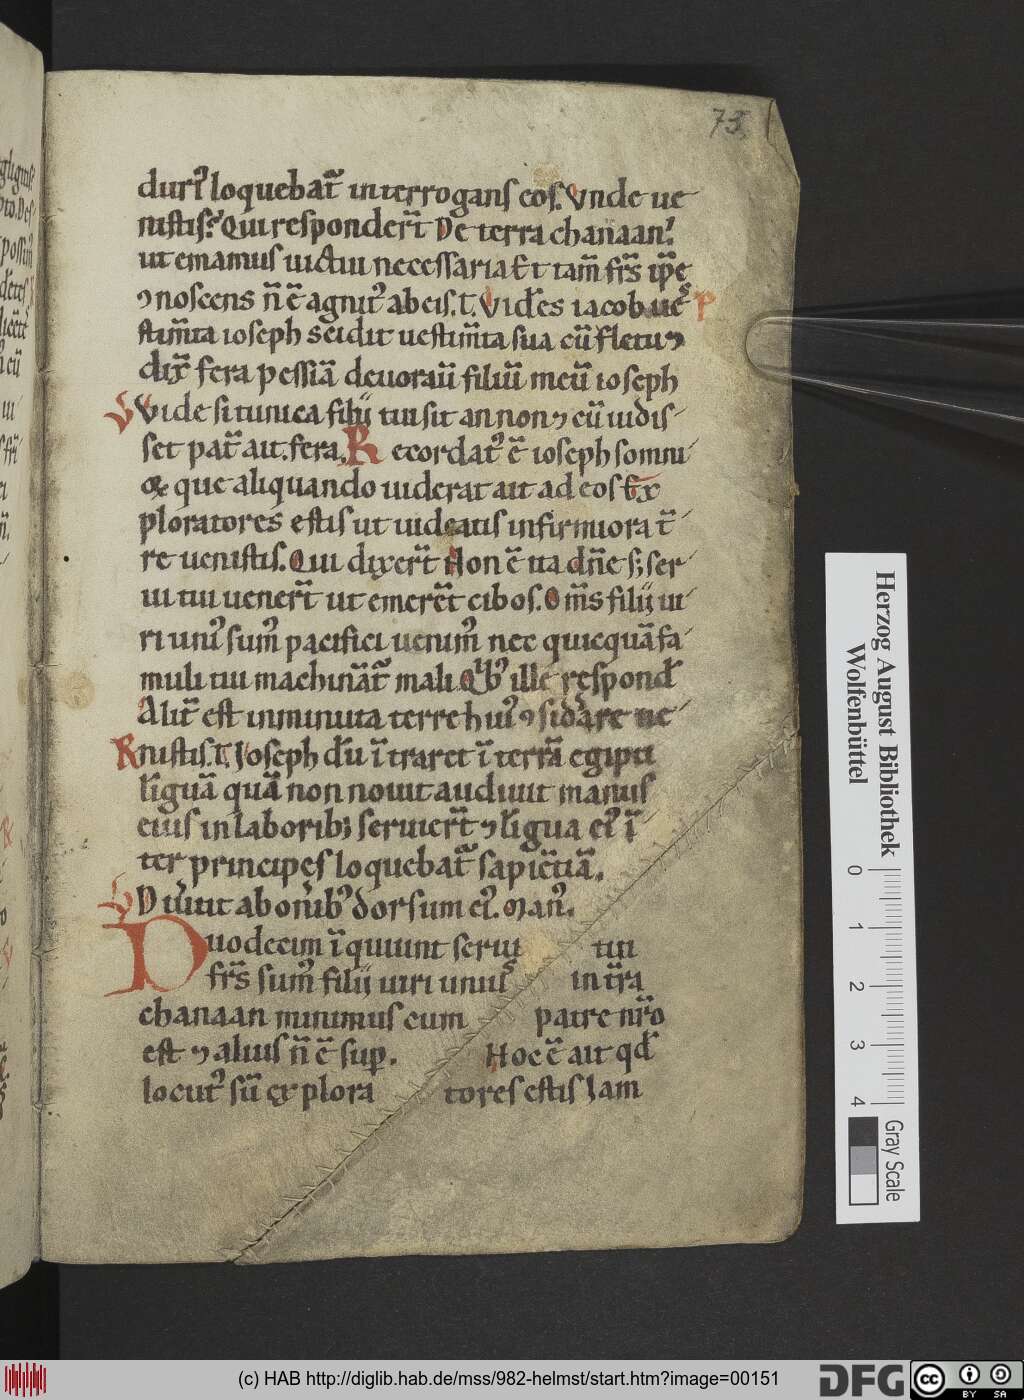 73.
duri᷒ loquebat̄ interrogans eos. Vnde ue
nistis? Qui responder̄t De terra chanaan.
ut emamus uictui necessaria Et tam̄ fr̄s ip̄e
⁊ noscens n̄ ē agnit᷒ ab eis. t. Vid̄es iacob ue P
stim̄ta ioseph scidit uestim̄ta sua cū fletu ⁊
dix̄ fera pessiā deuoraū filiū meū ioseph
V Vide si tunica filij tui sit an non ⁊ cū uidis
set pat̄ ait. fera. R ecordat᷒ ē ioseph somni
oꝝ que aliquando uiderat ait ad eos Ex
ploratores estis ut uideatis infirmiora t̄
re uenistis. Qui dixer̄t Non ē ita dn̄e s; ser
ui tui uener̄t ut emerēt cibos. Om̄s filij ui
ri uni᷒ sum᷒ pacifici uenim᷒ nec quicquā fa
muli tui machināt᷒ mali. Qib᷒ ille respond̄
Alit̄ est inminuta terre hui᷒ ⁊siđare ue
R nistis. t. Ioseph dū ītraret ī terrā egipti
līguā quā non nouit audiuit manus
eius in laborib; seruier̄t ⁊ līgua ei᷒ ī
ter principes loquebat̄ sapiētiā.
V Diuit ab onīb᷒ dorsum ei᷒. Man᷒.
Duodecim ī quiunt serui tui
fr̄s sum᷒ filij uiri unius in tr̄a
chanaan minimus cum patre nr̄o
est ⁊ alius n̄ ē suꝑ. Hoc ē ait qđ
locut᷒ sū explora tores estis Iam
Herzog August Bibliothek
Wolfenbüttel
0 1 2 3 4
Gray Scale
(c) HAB http://diglib.hab.de/mss/982-helmst/start.htm?image=00151
DFG
cc
BY SA